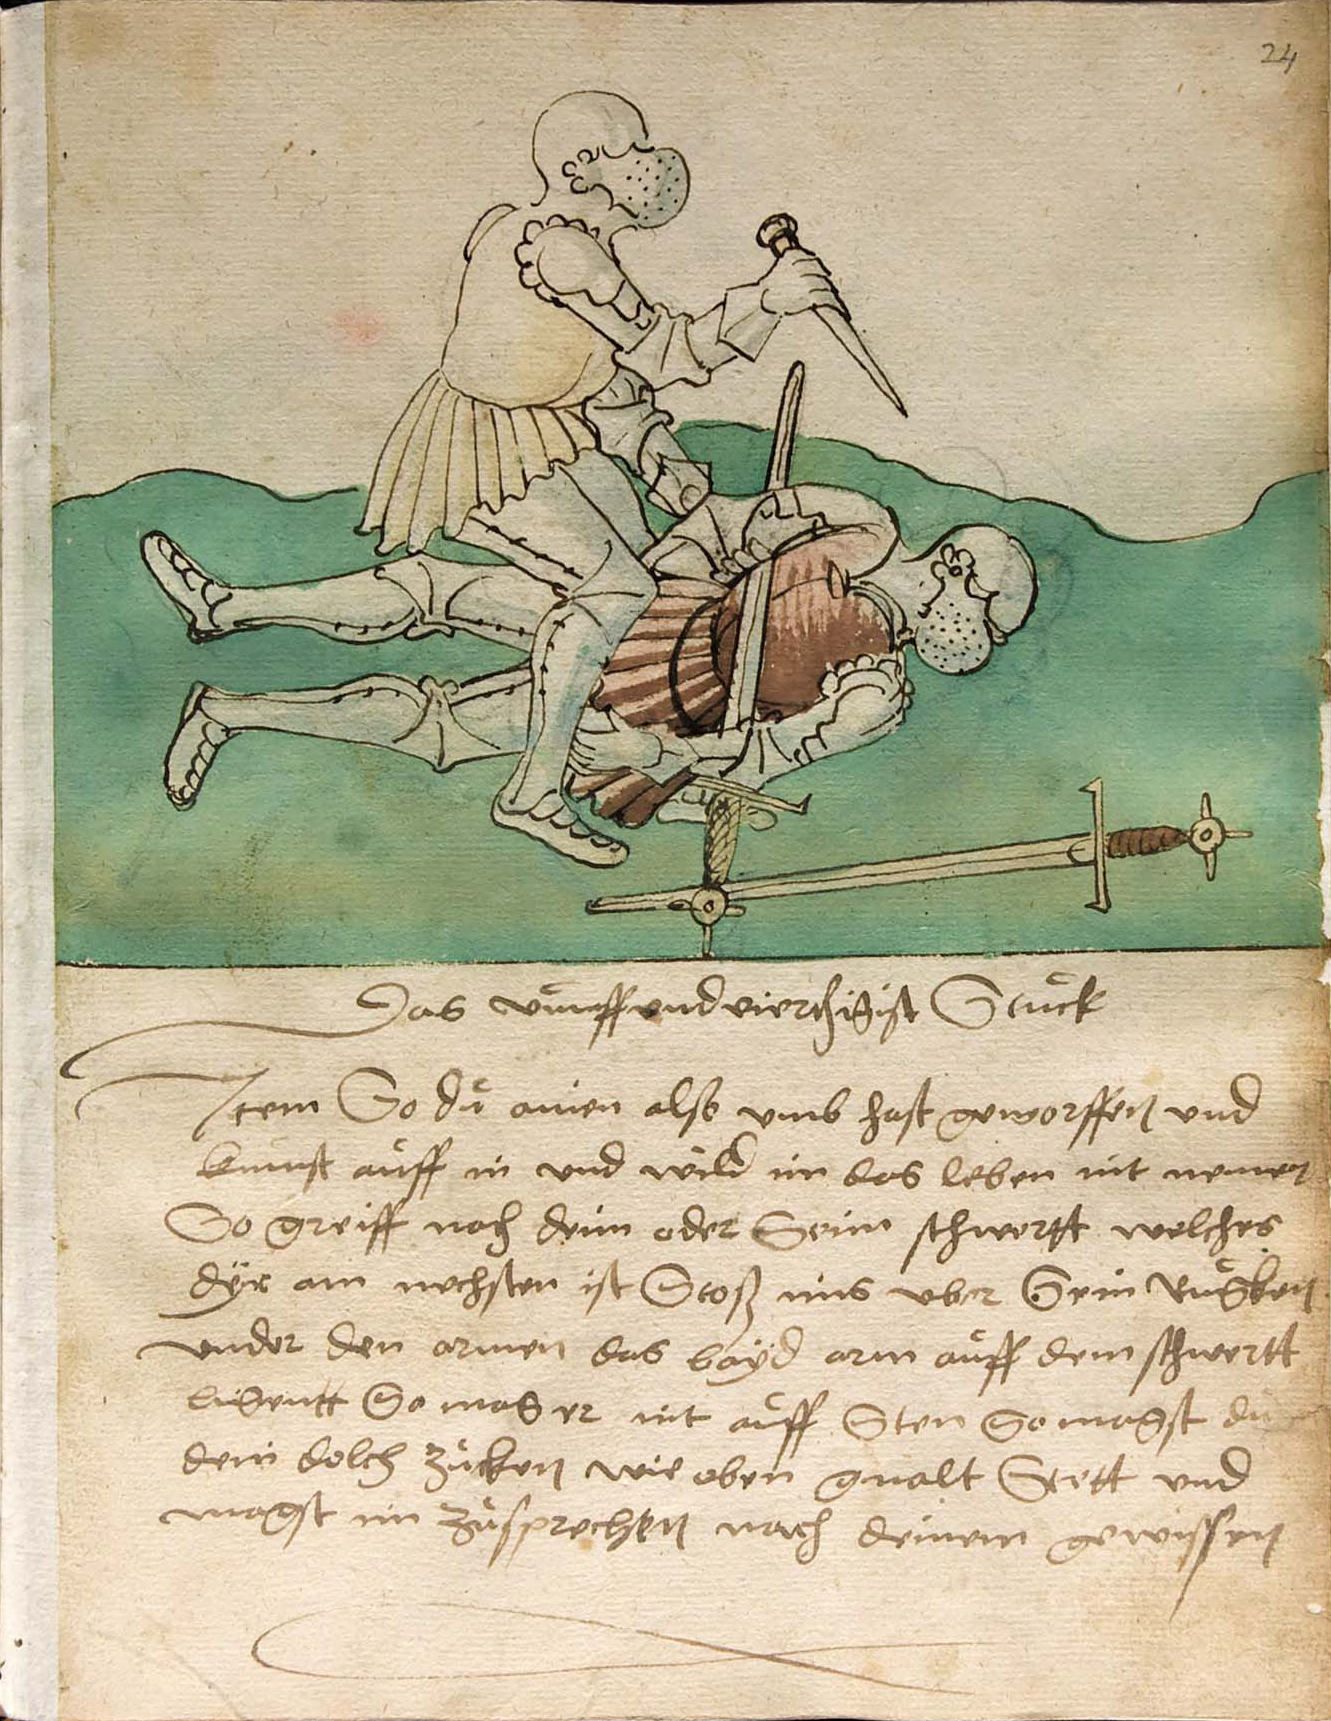 24
Das vünffundvierthigist Stuck
Item So dü ainen also umb hast geworffen und
kumst aüff in und wild im das leben nit nemen
So greiff nach deim oder Seim schwertt welches
dÿr am nechsten ist Stoß ims uber Sein Rugken
under den armen das bayd arm aüff dem schwertt
ligentt So mag er nit aüff Sten So magst dü
dein dolch zücken wie oben gmalt Stett und
magst im züsprechen nach deinem gewissen